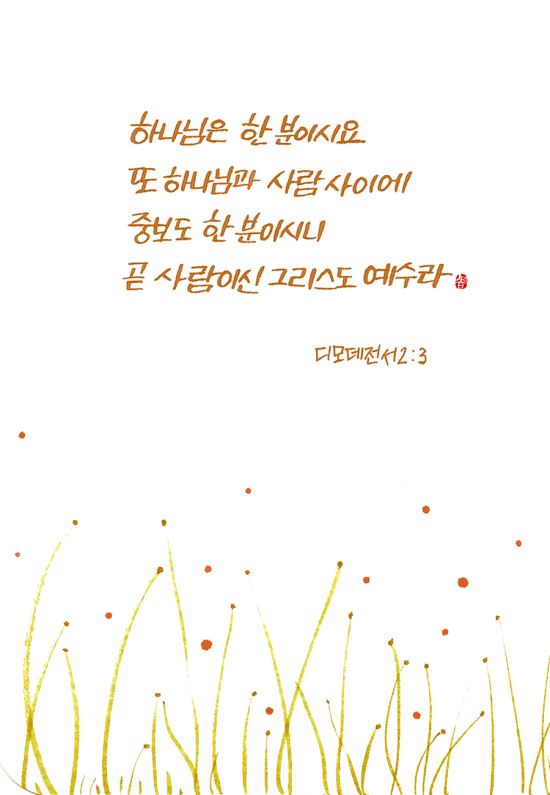 하나님은 한 분이시요
또 하나님과 사람 사이에
중보도 한 분이시니
곧 사람이신 그리스도 예수라
디모데전서2:3